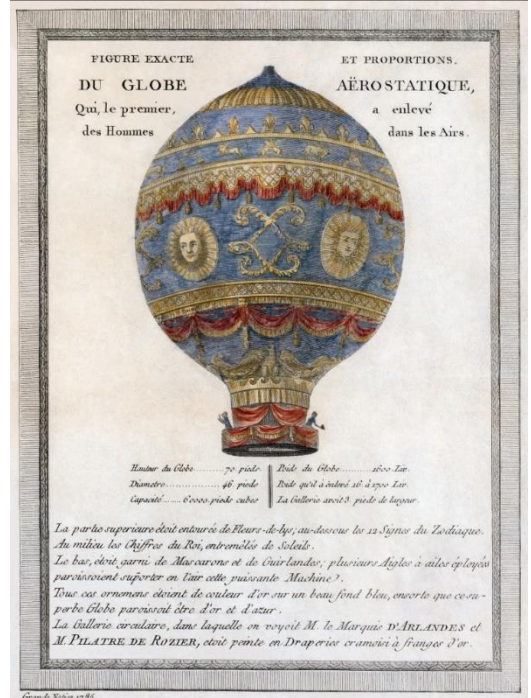 FIGURE EXACTE ET PROPORTIONS.
DU GLOBE AËROSTATIQUE,
Qui, le premier, a enlevé
des Hommes dans les Airs.
Hauteur du Globe..........70 pieds.
Diametre....................46 pieds
Capacité.....60000 pieds cubes
Poids du Globe..........1600 Liv.
Poids qu'il à enlevé 16 à 1700 Liv.
La Gallerie avoit 3. pieds de largeur.
La partie superieure étoit entourée de Fleurs-de-lys, au-dessous les 12 Signes du Zodiaque.
Au milieu les Chiffres du Roi, entremêlés de Soleils.
Le bas, étoit garni de Mascarons et de Guirlandes, plusieurs Aigles à ailes éployées
paroissoient suporter en l'air cette puissante Machine.
Tous ces ornemens étoient de couleur d'or sur un beau fond bleu, ensorte que ce su-
perbe Globe paroissoit être d'or et d'azur.
La Gallerie circulaire, dans laquelle on voyoit M. le Marquis D'ARLANDES et
M. PILATRE DE ROZIER, etoit peinte en Draperies cramoisi à franges d'or.
1786